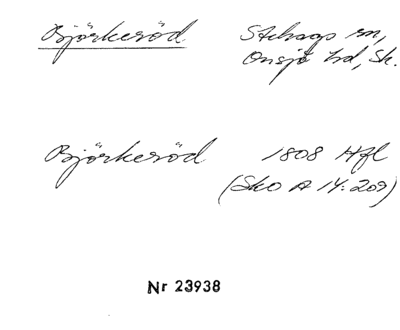 Björkeröd Stehags sn,
Onsjö hd, Sk.
Björkeröd 1808 Hfl
(Sko A 14:209)
Nr 23938